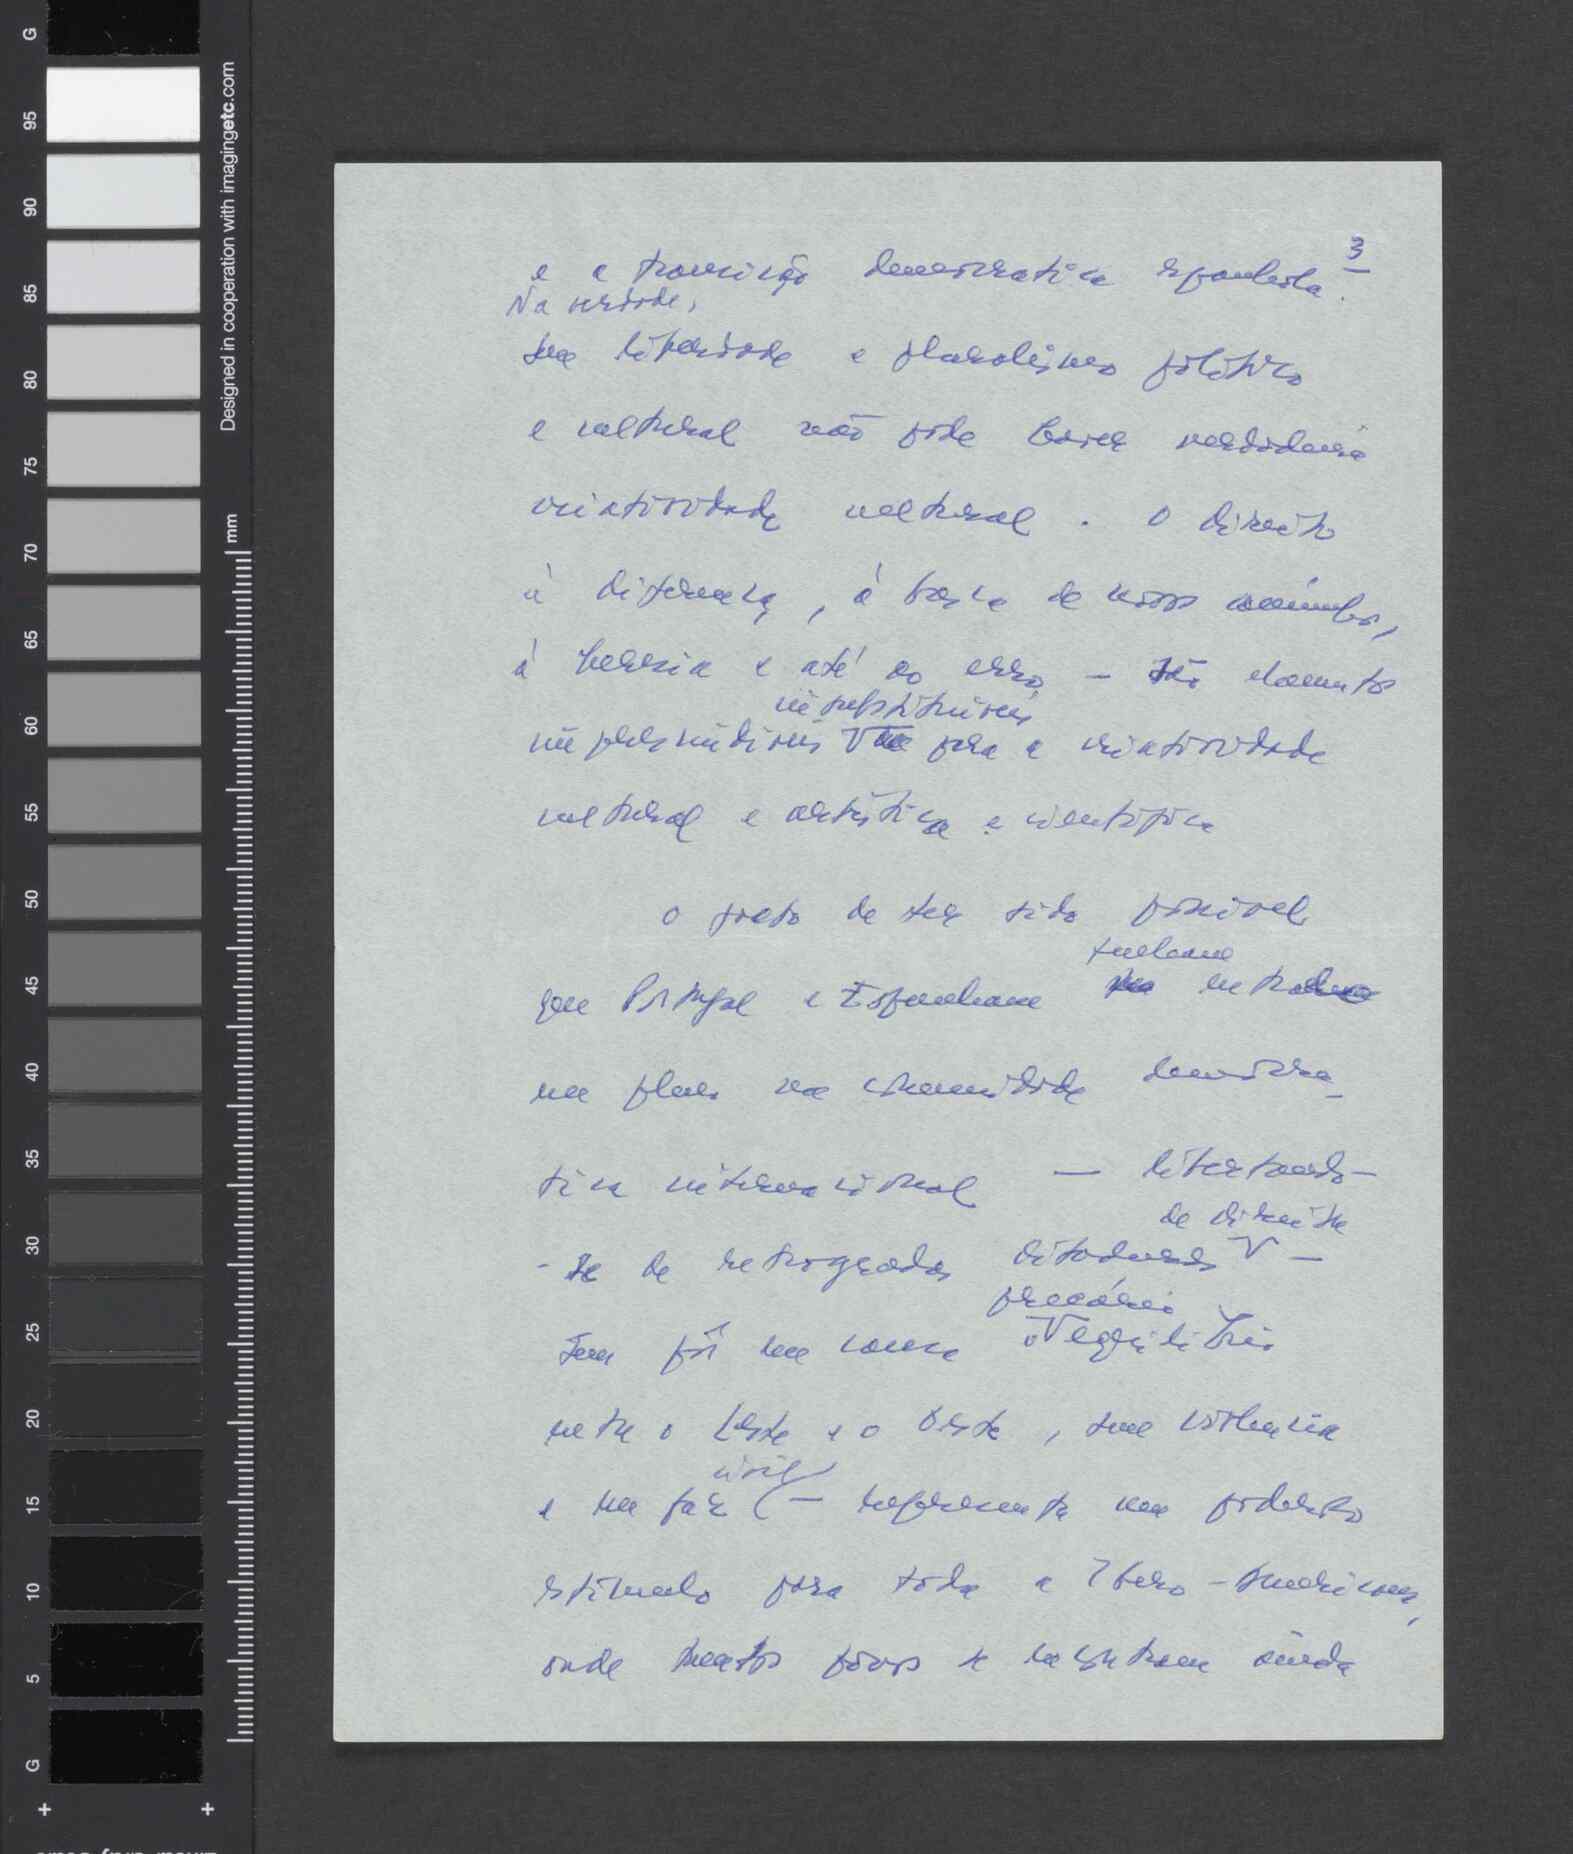 G
95
90
85
80
75
70
65
60
55
50
45
40
35
30
25
20
15
10
5
G
Designed in cooperation with imagingetc.com
mm
3
e a transição democratica espanhola.
Na verdade,
sem liberdade e pluralismo político
e cultural não pode haver verdadeira
criatividade cultural. O direito
à diferença, à busca de novos caminhos,
à heresia e até ao erro - são elementos
insubstituíveis
imprescindíveis para a criatividade
cultural e artística e cientifica
O facto de ter sido possivel
que Portugal e Espanha
na comunidade democrá-
tica internacional — libertando-
de direita
-se de retrogradas ditaduras —
precário
sem pôr em causa o equilíbrio
entre o Leste e o Oeste, sem violencia
civil
e em paz — representa um poderoso
estimulo para toda a Ibero-America,
onde tantos povos se encontram ainda